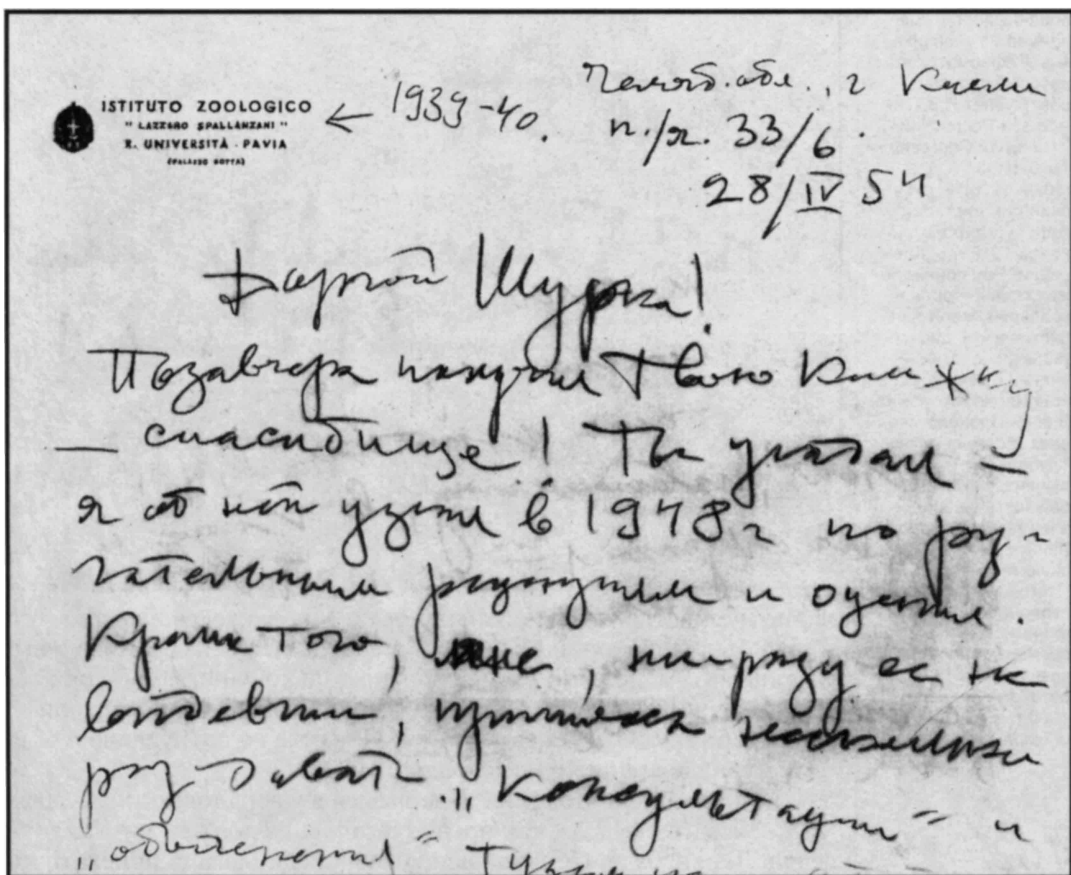 ISTITUTO ZOOLOGICO
"LAZZARO SPALLANZANI"
R. UNIVERSITÀ - PAVIA
(PALAZZO BOTTA)
← 1939-40.
Челяб. обл., г. Касли
п./я. 33/6.
28/IV 54
Дорогой Шурка!
Позавчера получил Твою книжку
— спасибище! Ты угадал —
я об ней узнал в 1948 г по ру-
гательным рецензиям и оценкам.
Кроме того, мне, ни разу ее не
видевши, пришлось несколько
раз давать „консультации“ и
„объяснения“